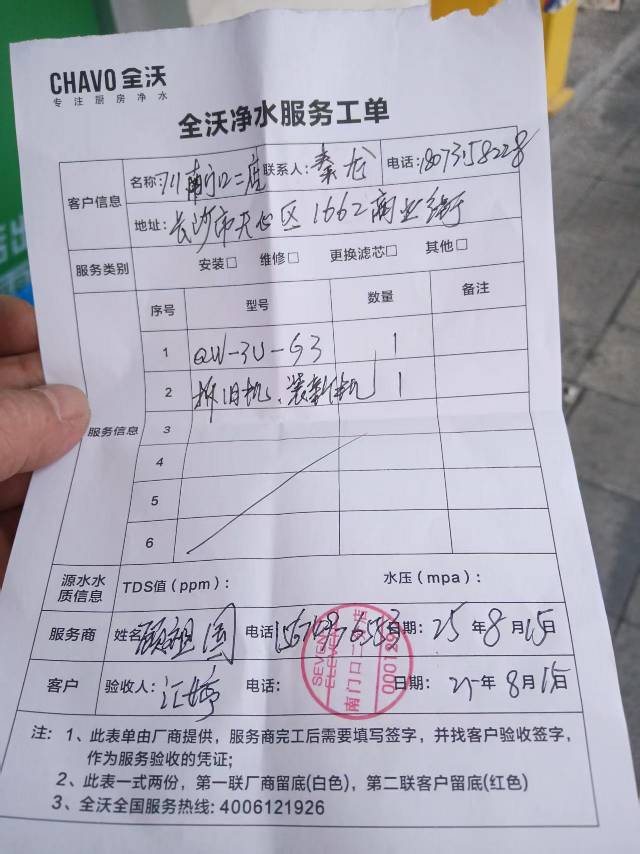 CHAVO 全沃
专注厨房净水
全沃净水服务工单
客户信息 名称: 南门口二店 联系人: 秦龙 电话:
地址: 长沙市天心区1662商业街
服务类别 安装□ 维修□ 更换滤芯□ 其他□
服务信息
序号 型号 数量 备注
1 QW-3U-G3 1
2 拆旧机、装新机 1
3
4
5
6
源水水质信息 TDS值(ppm): 水压(mpa):
服务商 姓名 顾祖国 电话 日期: 25年8月15日
客户 验收人: 江婷 电话: 日期: 25年8月15日
SEVEN
ELEVEN
南门口二店
注: 1、此表单由厂商提供,服务商完工后需要填写签字,并找客户验收签字,
作为服务验收的凭证;
2、此表一式两份,第一联厂商留底(白色),第二联客户留底(红色)
3、全沃全国服务热线: 4006121926